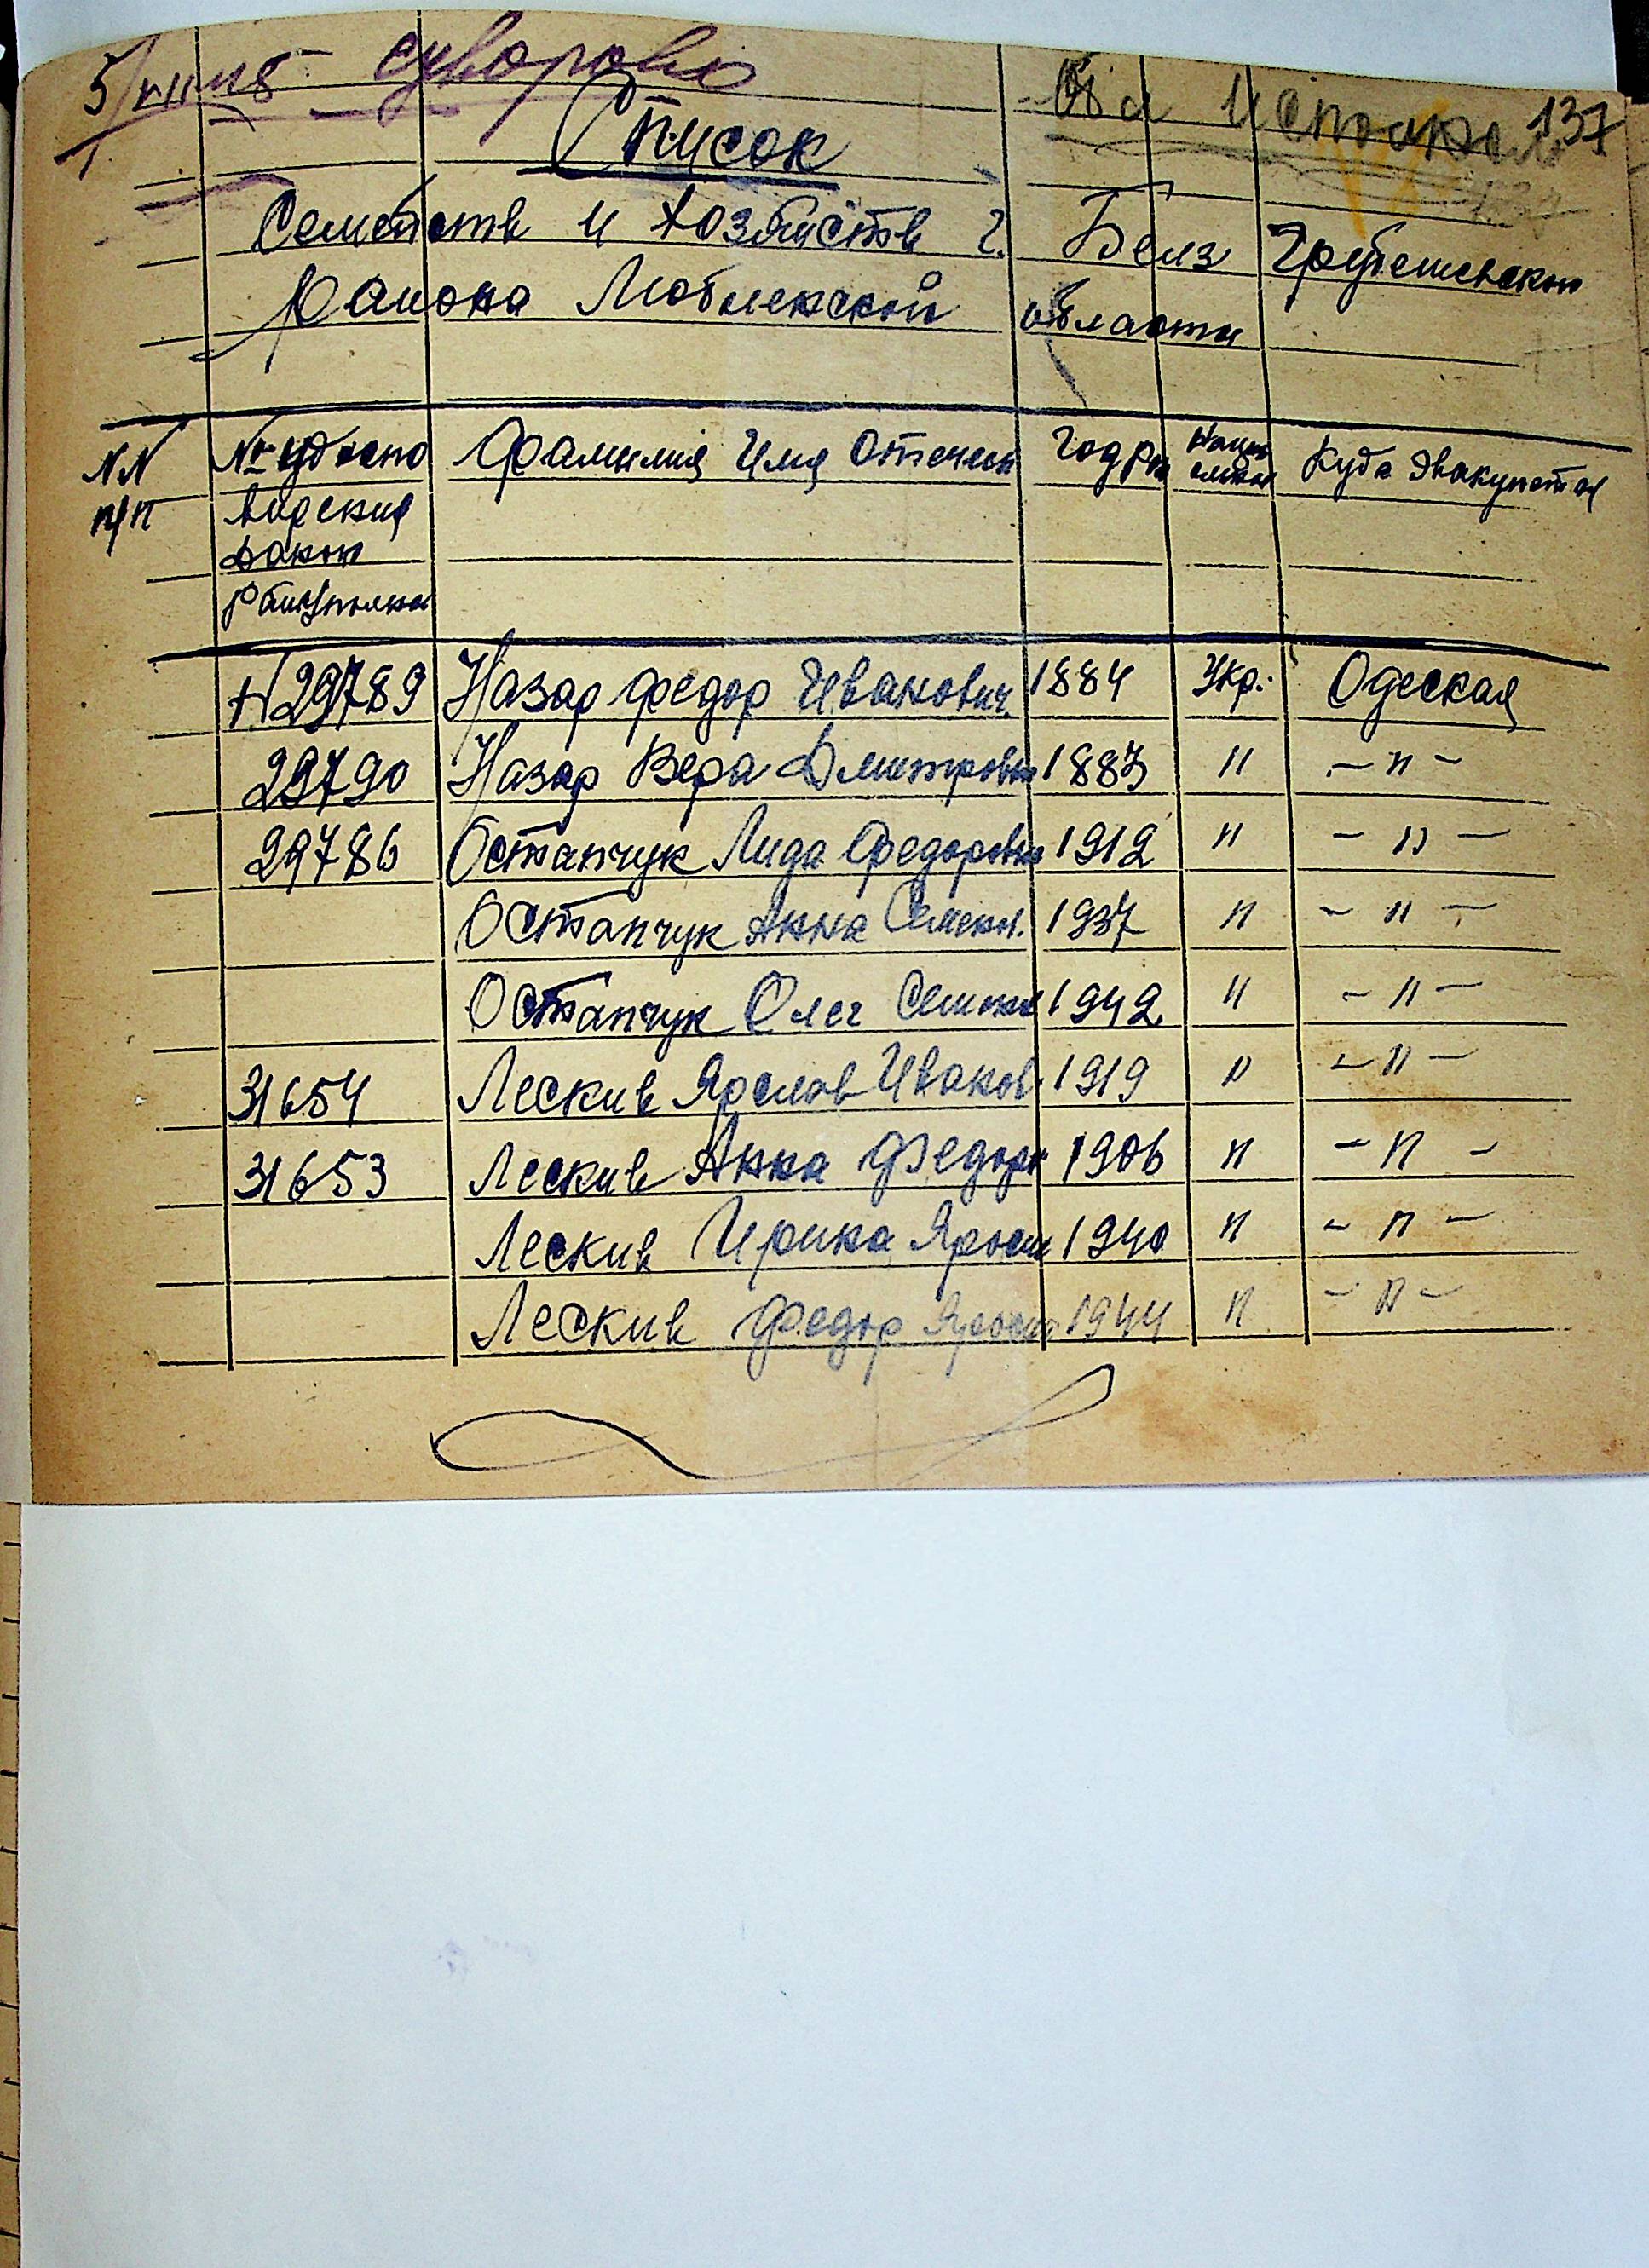 5/VII 45 Суворово
137
Список
Семейств и Хозяйств г. Белз Грубешевской
Района Любленской области
NN п/п № удосто верения Фамилия Имя Отечест Год рж Куда Эвакуется
H 29789 Назар Федор Иванович 1884 Укр. Одеская
29790 Назар Вера Дмитровна 1883 " - " -
29786 Остапчук Лида Федоровна 1912 " - " -
Остапчук Анна Семен. 1937 " - " -
Остапчук Олег Семен 1942 " - " -
31654 Лескив Ярослав Иванов. 1919 " - " -
31653 Лескив Анна Федор 1906 " - " -
Лескив Ирина Яросл 1940 " - " -
Лескив Федор Яросл 1944 " - " -